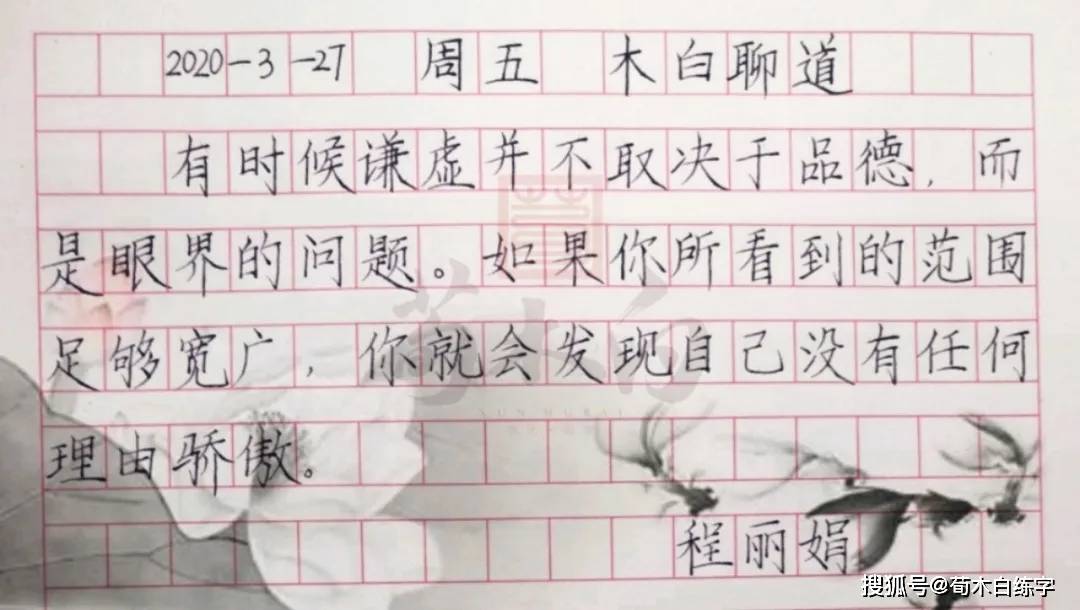 2020-3-27 周五 木白聊道
有时候谦虚并不取决于品德，而
是眼界的问题。如果你所看到的范围
足够宽广，你就会发现自己没有任何
理由骄傲。
程丽娟
荀木白
XUN MUBAI
搜狐号@荀木白练字